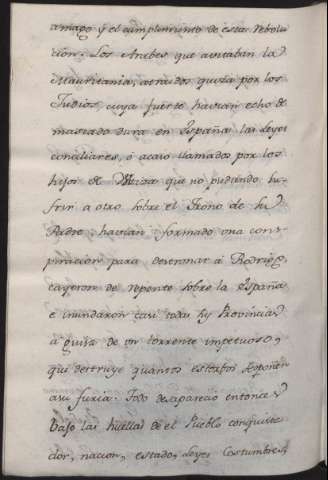 amago y el cumplimiento de estas Rebolu
cion. Los Arabes que avitaban la
Mauritania, atrados quiza por los
Judios, cuya suerte havian echo de
masiado dura en España las Leyes
conciliares, ó acaso llamados por los
hijos de Witiza que no pudiendo su-
frir a otro sobre el Trono de su
Padre havian formado una cons-
piracion para desetronar á Rodrigo,
cayeron de repente sobre la España
é inundaron casi todas sus Provincias
á guisa de un torrente impetuoso,
qui destruye quantos estorbos se oponen
a su furia. Todo desaparecio entonces
bajo las huellas de el Pueblo conquista
dor, nacion, estado, Leyes Costumbres,